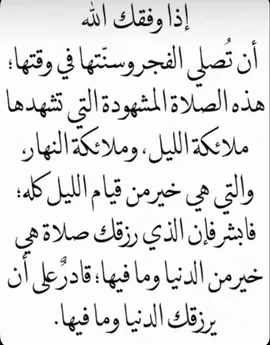 إذا وفقك الله
أن تُصلي الفجر وسنّتها في وقتها؛
هذه الصلاة المشهودة التي تشهدها
ملائكة الليل، وملائكة النهار،
والتي هي خير من قيام الليل كله؛
فابشر فإن الذي رزقك صلاة هي
خير من الدنيا وما فيها؛ قادرٌ على أن
يرزقك الدنيا وما فيها.